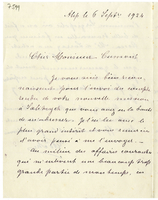 7544
Alep le 5 Sept. 1924
Cher Monsieur
Je vous suis bien
reconnaissant pour l'envoi du compte
rendu de votre nouvelle mission
à Palmyre que vous avez eu la bonté
de m'adresser. Je l'ai lu avec le
plus grand intérêt et vous remercie
d'avoir pensé à me l'envoyer.
Au milieu des affaires courantes
qui m'enlèvent une beaucoup trop
grande partie de mon temps,